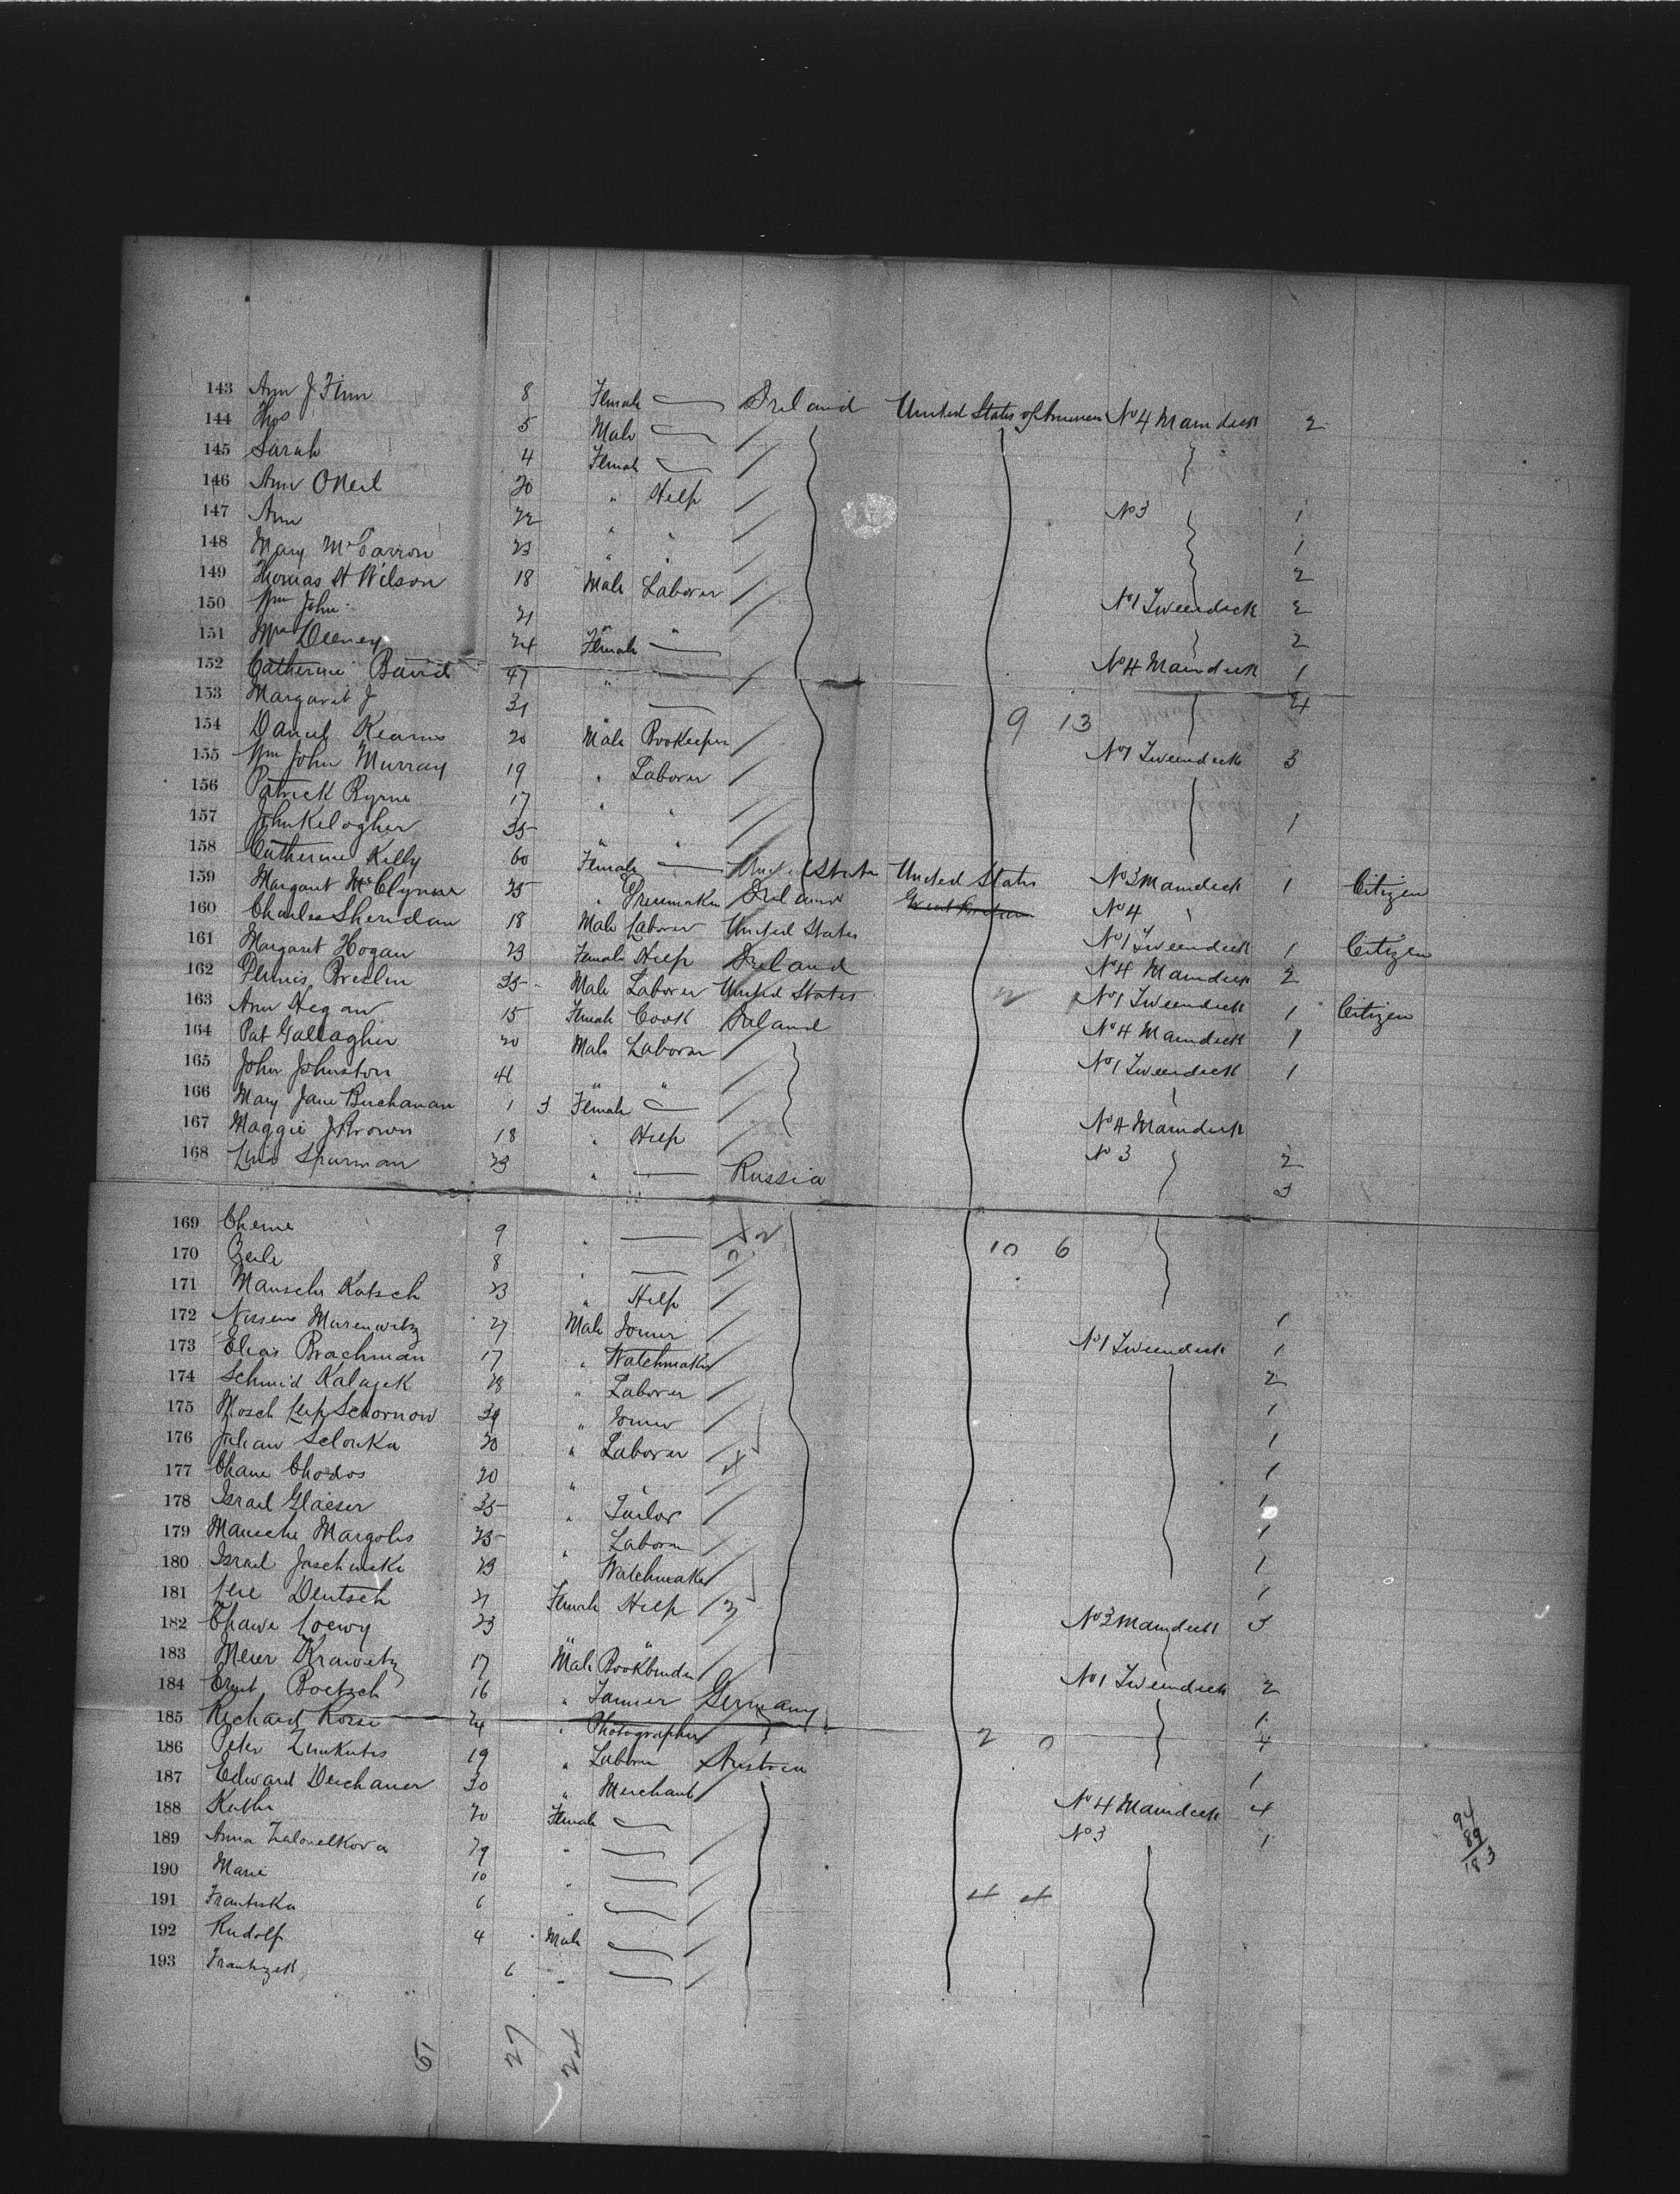 143 Ann J. Finn 8 Female Ireland United States of No 4 Maindeck 2
144 Thos 5 Male
145 Sarah 4 Female
146 Ann ONeil 20 " Help
147 Ann 22 " " No 3 1
148 Mary 23 " " 1
149 Thomas H Wilson 18 Male Laborer 2
150 Wm John 21 " " No 1 Tweendeck 2
151 Deeney 24 Female 2
152 Catherine David 47 " No 4 Maindeck 1
153 Margaret J 31 4
154 Daniel Kearns 20 Male Bookeeper 9 13
155 Wm John Murray 19 " Laborer No 1 Tweendeck 3
156 Patrick Byrne 17 " "
157 John Kelogher 35 " " 1
158 Catherine Kelly 60 Female United States United States
159 Margaret 25 " Dressmaker Ireland No 3 Maindeck 1 Citizen
160 Charles Sheridan 18 Male Laborer United States No 4
161 Margaret Hogan 23 Female Help Ireland No 1 Tweendeck 1 Citizen
162 Dennis Breslin 35 Male Laborer United States No 4 Maindeck 2
163 Ann Hegan 15 Female Cook Ireland 2 No 1 Tweendeck 1 Citizen
164 Pat Gallagher 20 Male Laborer No 4 Maindeck 1
165 John Johnston 41 " " No 1 Tweendeck 1
166 Mary Jane Buchanan 1 3 Female
167 Maggie J Brown 18 " Help No 4 Maindeck
168 23 " Russia No 3 2
3
169 Cheme 9 "
170 8 " 10 6
171 Mausche Katsch 23 " Help
172 27 Male Joiner 1
173 Elias Brachman 17 " Watchmaker No 1 Tweendeck 1
174 Schmid 28 " Laborer 2
175 Mosch 39 " Joiner 1
176 Julian 20 " Laborer 1
177 Chane Chodos 20 " " 1
178 Israel Glaeser 35 " Tailor 1
179 Mausche Margolis 25 " Laborer 1
180 Israel 23 Watchmaker 1
181 Deutsch 21 Female Help 1
182 Chawe Loewy 23 " " No 3 Maindeck 3
183 Meier Krawetz 17 Male Bookbinder
184 Ernst Boetzsch 16 " Tanner Germany No 1 Tweendeck 2
185 Richard 24 " Photographer 1
186 Peter 19 " Laborer Austria 2 0 4
187 Edward Deichauer 30 " Merchant 1
188 Kathe 20 Female No 4 Maindeck 4
189 Anna 29 " No 3 1
190 Marie 10 "
191 Frantiska 6 " 4 4
192 Rudolf 4 Male
193 6 "
94
89
183
51 27 24